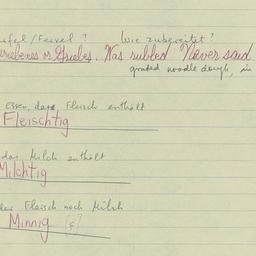 afel/Fervel? Wie zubereitet?
riebenes or Griebes. Was rubled Never said
grated noodle dough, in
Essen, dass Fleisch enthält
Fleischtig
das Milch enthält
Milchtig
der Fleisch noch Milch
Minnig [ç]